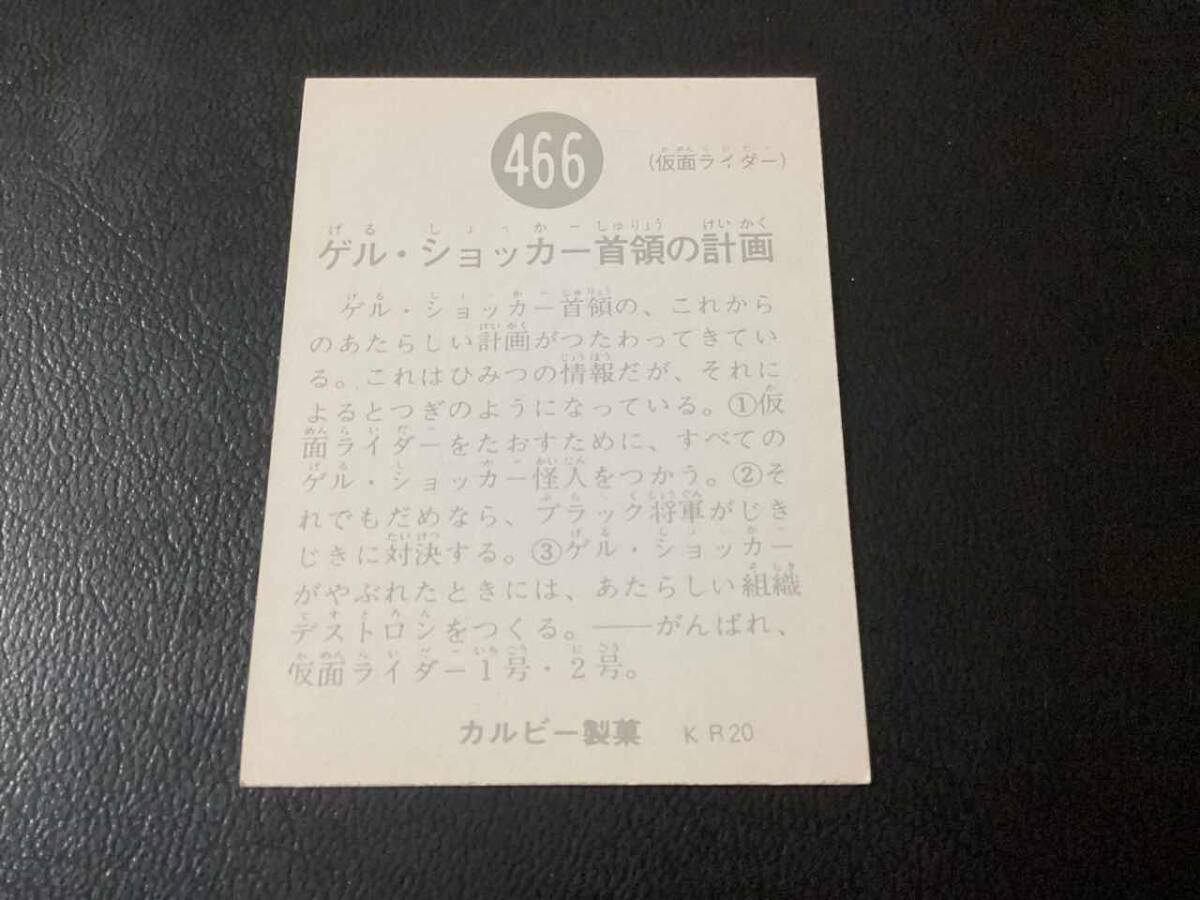 466
(仮面ライダー)
ゲル・ショッカー首領の計画
ゲル・ショッカー首領の、これから
のあたらしい計画がつたわってきてい
る。これはひみつの情報だが、それに
よるとつぎのようになっている。①仮
面ライダーをたおすために、すべての
ゲル・ショッカー怪人をつかう。②そ
れでもだめなら、ブラック将軍がじき
じきに対決する。③ゲル・ショッカー
がやぶれたときには、あたらしい組織
デストロンをつくる。——がんばれ、
仮面ライダー1号・2号。
カルビー製菓 KR20